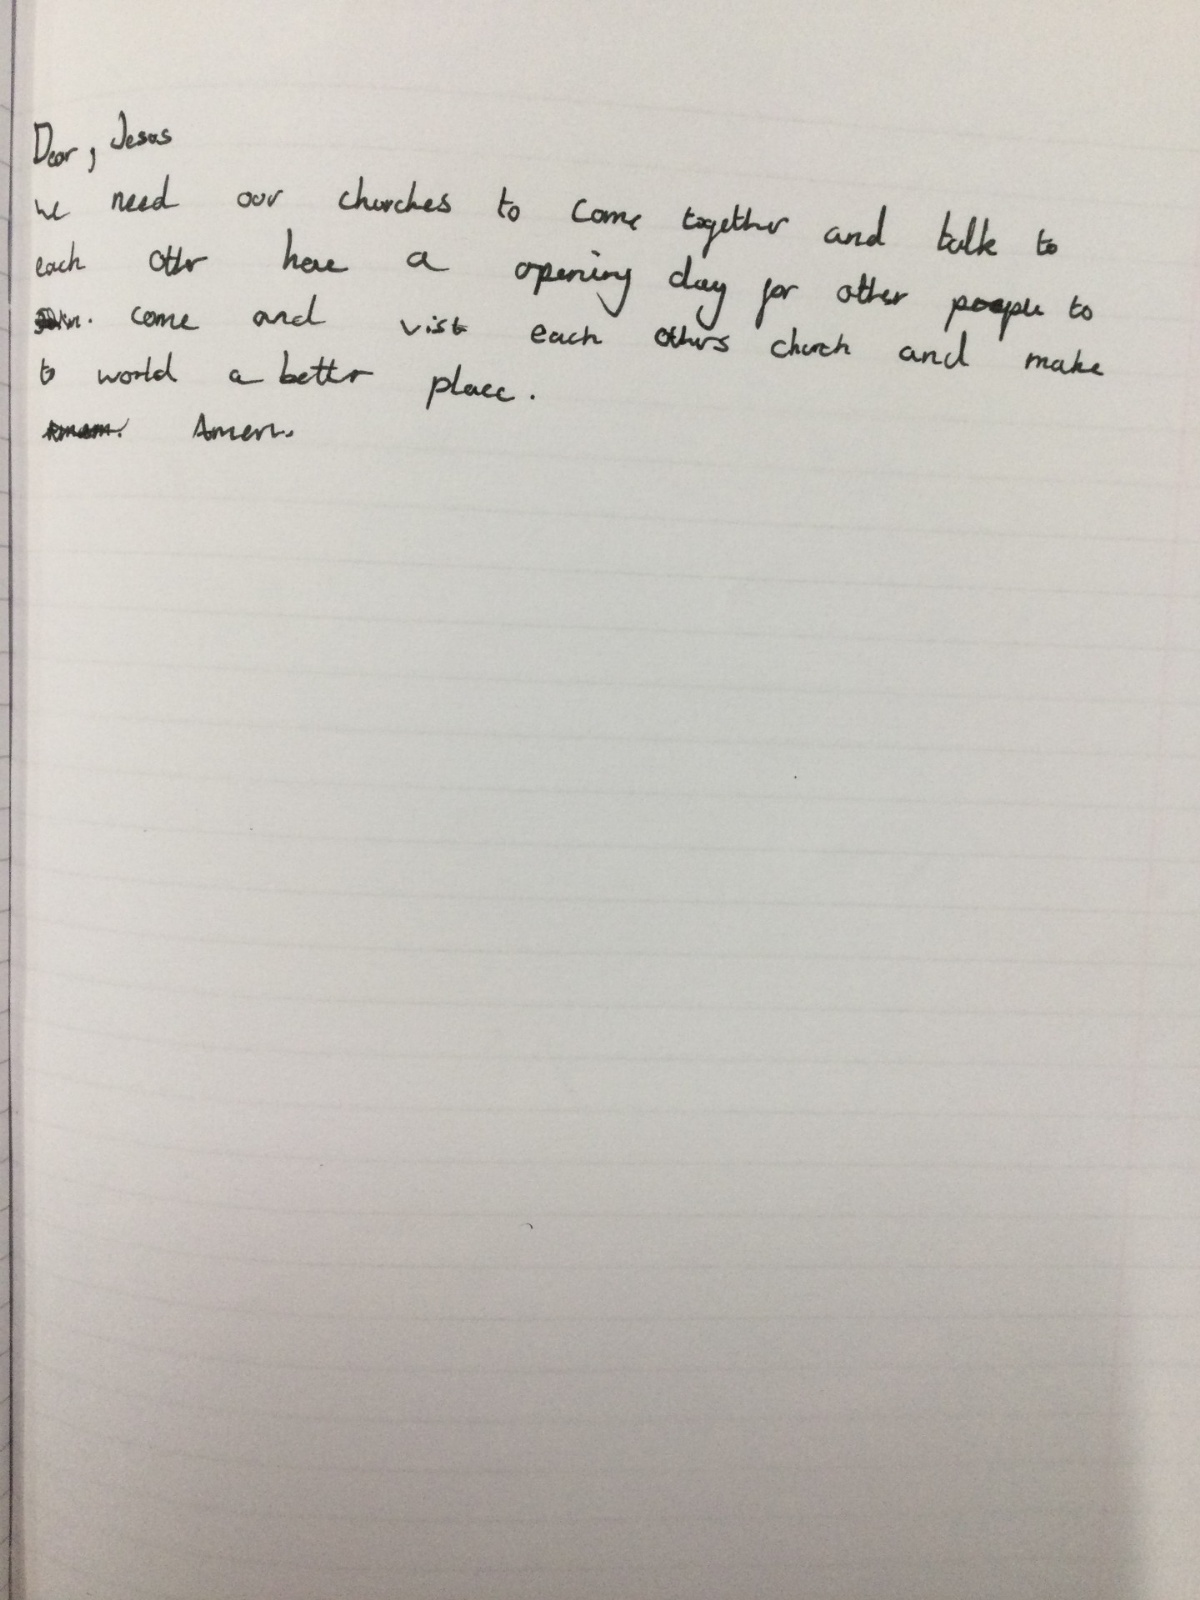 Dear, Jesus
we need our churches to come together and talk to
each other have a opening day for other people to
come and vist each others church and make
to world a better place.
Amen.